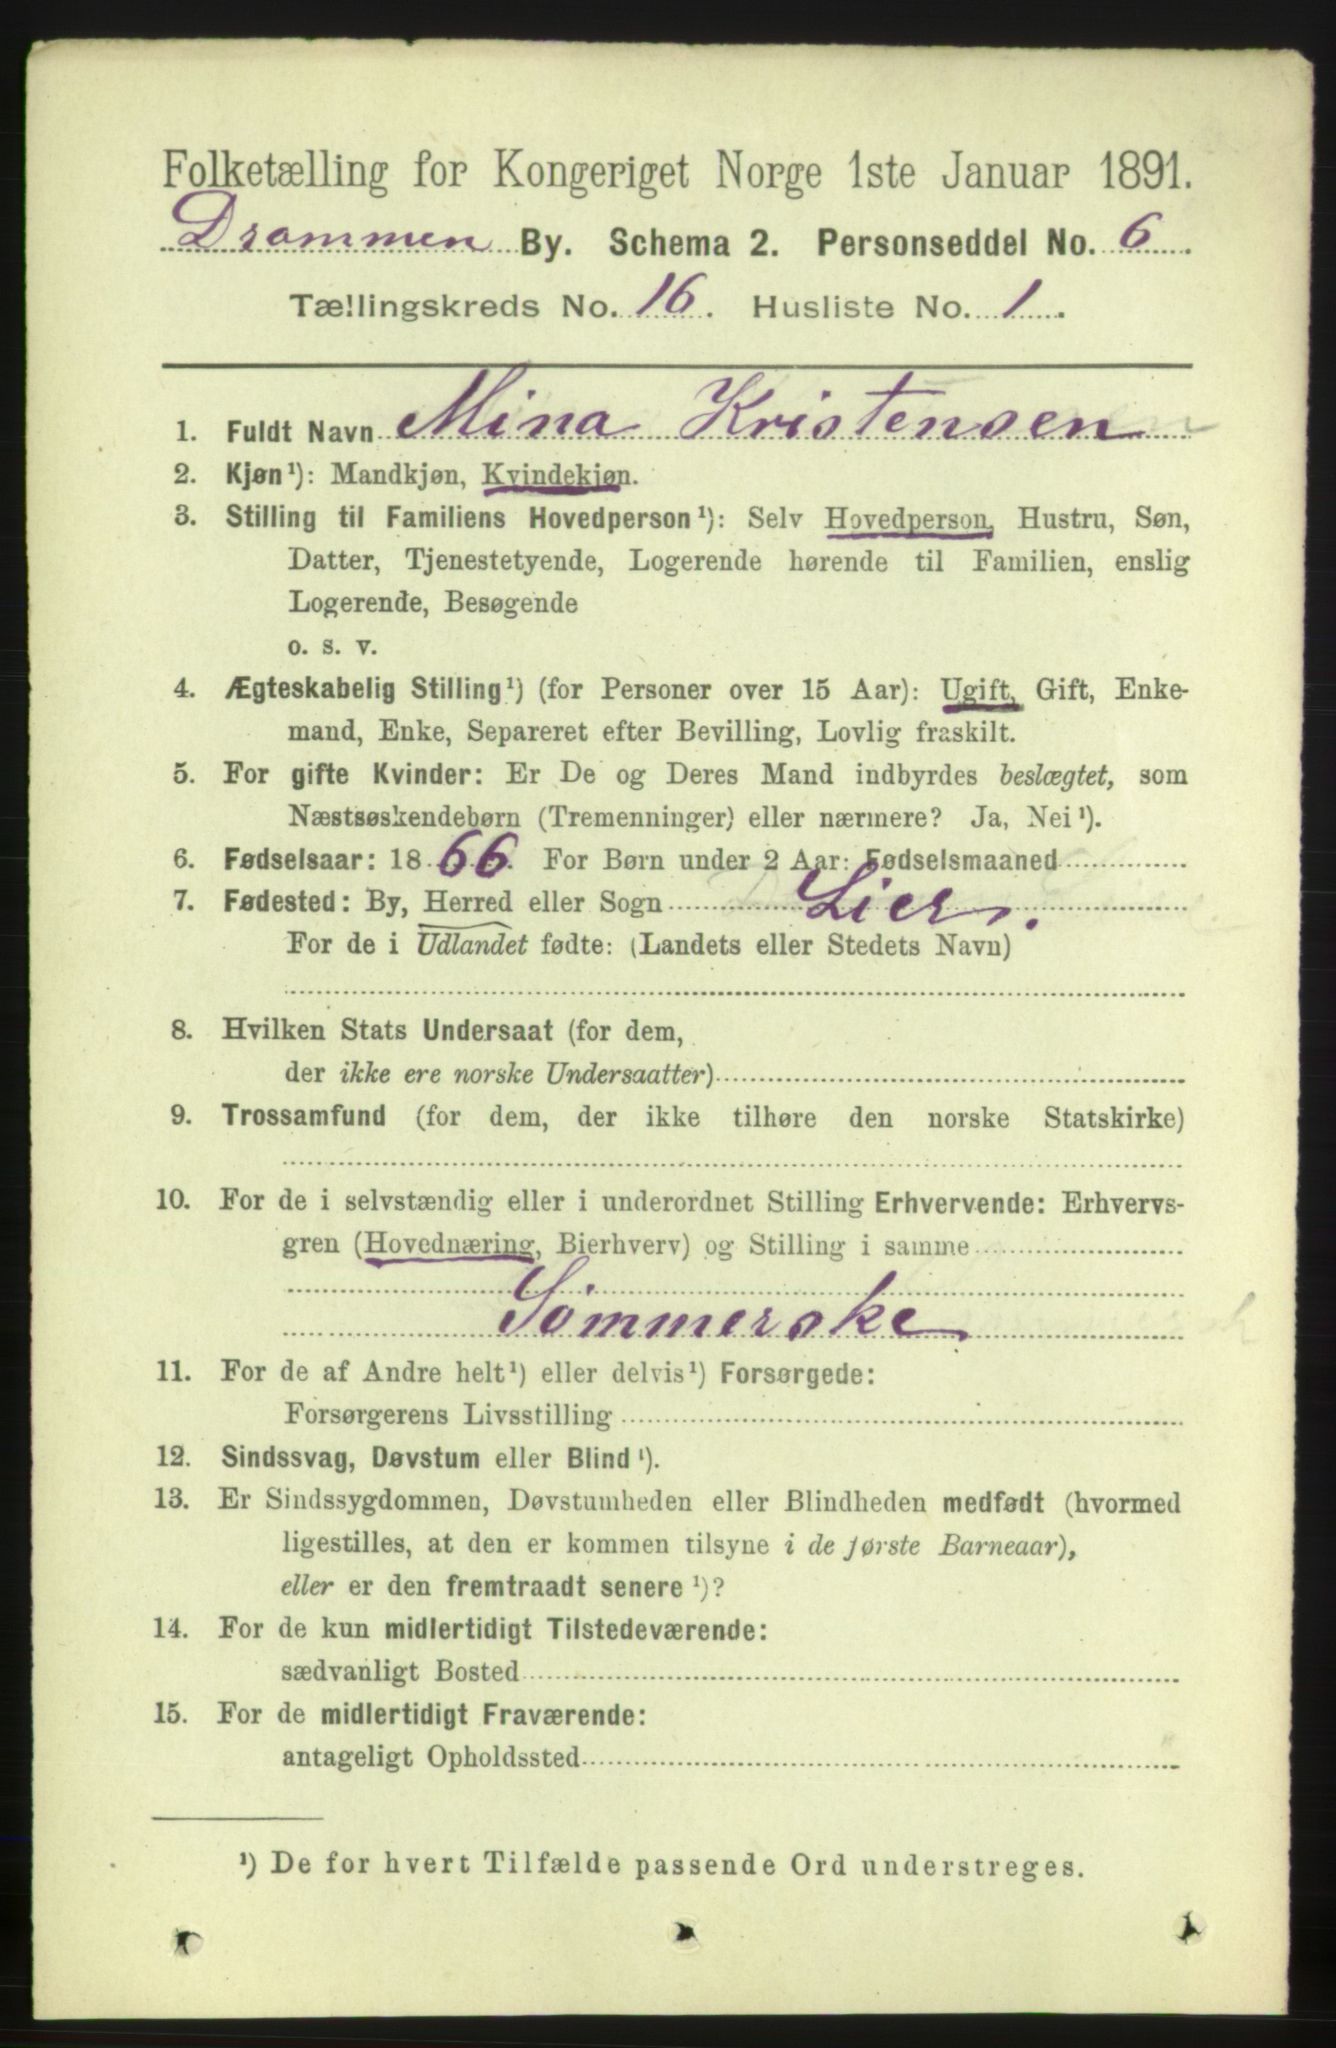 Folketælling for Kongeriget Norge 1ste Januar 1891.
Drammen By. Schema 2. Personseddel No. 6
Tællingskreds No. 16. Husliste No. 1.
1. Fuldt Navn Mina Kristensen
2. Kjøn¹): Mandkjøn, Kvindekjøn.
3. Stilling til Familiens Hovedperson¹): Selv Hovedperson, Hustru, Søn,
Datter, Tjenestetyende, Logerende hørende til Familien, enslig
Logerende, Besøgende
o. s. v.
4. Ægteskabelig Stilling¹) (for Personer over 15 Aar): Ugift, Gift, Enke-
mand, Enke, Separeret efter Bevilling, Lovlig fraskilt.
5. For gifte Kvinder: Er De og Deres Mand indbyrdes beslægtet, som
Næstsøskendebørn (Tremenninger) eller nærmere? Ja, Nei¹).
6. Fødselsaar: 1866. For Børn under 2 Aar: Fødselsmaaned
7. Fødested: By, Herred eller Sogn Lier.
For de i Udlandet fødte: (Landets eller Stedets Navn)
8. Hvilken Stats Undersaat (for dem,
der ikke ere norske Undersaatter)
9. Trossamfund (for dem, der ikke tilhøre den norske Statskirke)
10. For de i selvstændig eller i underordnet Stilling Erhvervende: Erhvervs-
gren (Hovednæring, Bierhverv) og Stilling i samme
Sømmerske
11. For de af Andre helt¹) eller delvis¹) Forsørgede:
Forsørgerens Livsstilling
12. Sindssvag, Døvstum eller Blind¹).
13. Er Sindssygdommen, Døvstumheden eller Blindheden medfødt (hvormed
ligestilles, at den er kommen tilsyne i de første Barneaar),
eller er den fremtraadt senere¹)?
14. For de kun midlertidigt Tilstedeværende:
sædvanligt Bosted
15. For de midlertidigt Fraværende:
antageligt Opholdssted
¹) De for hvert Tilfælde passende Ord understreges.